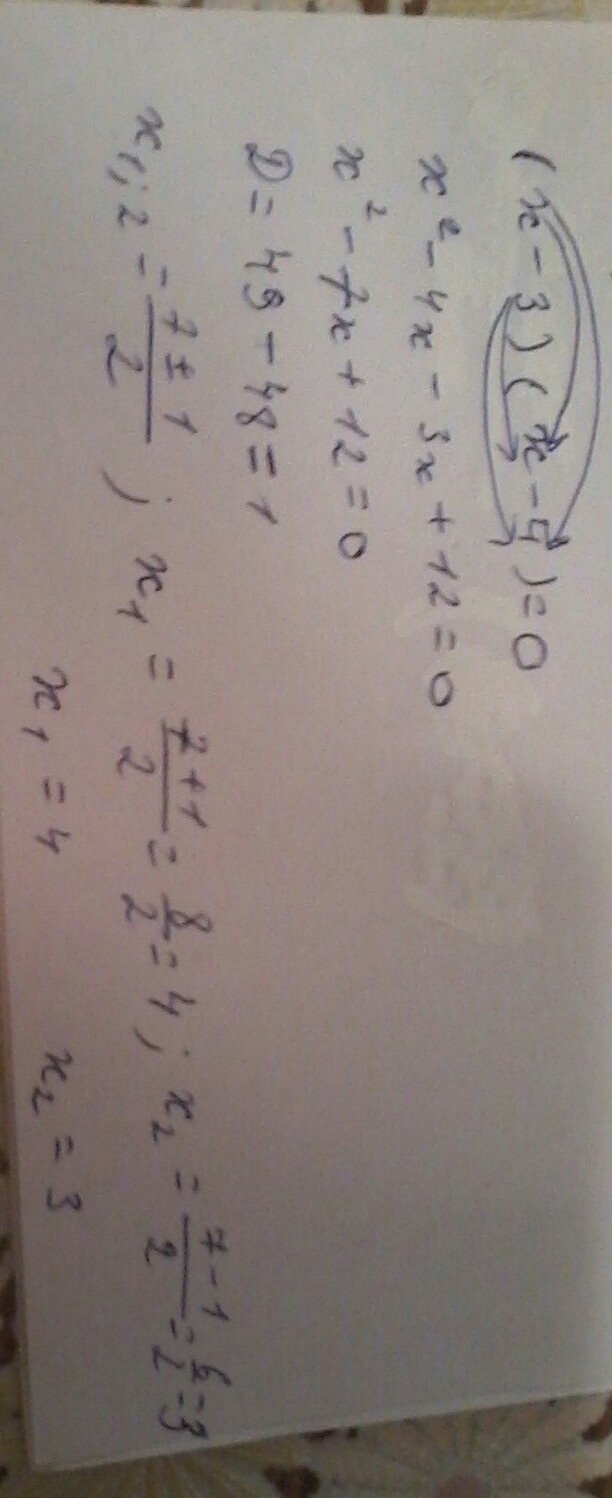 (x-3)(x-4)=0
x²-4x-3x+12=0
x²-7x+12=0
D=49-48=1
x₁;₂=7±1/2; x₁=7+1/2=8/2=4; x₂=7-1/2=6/2=3
x₁=4 x₂=3